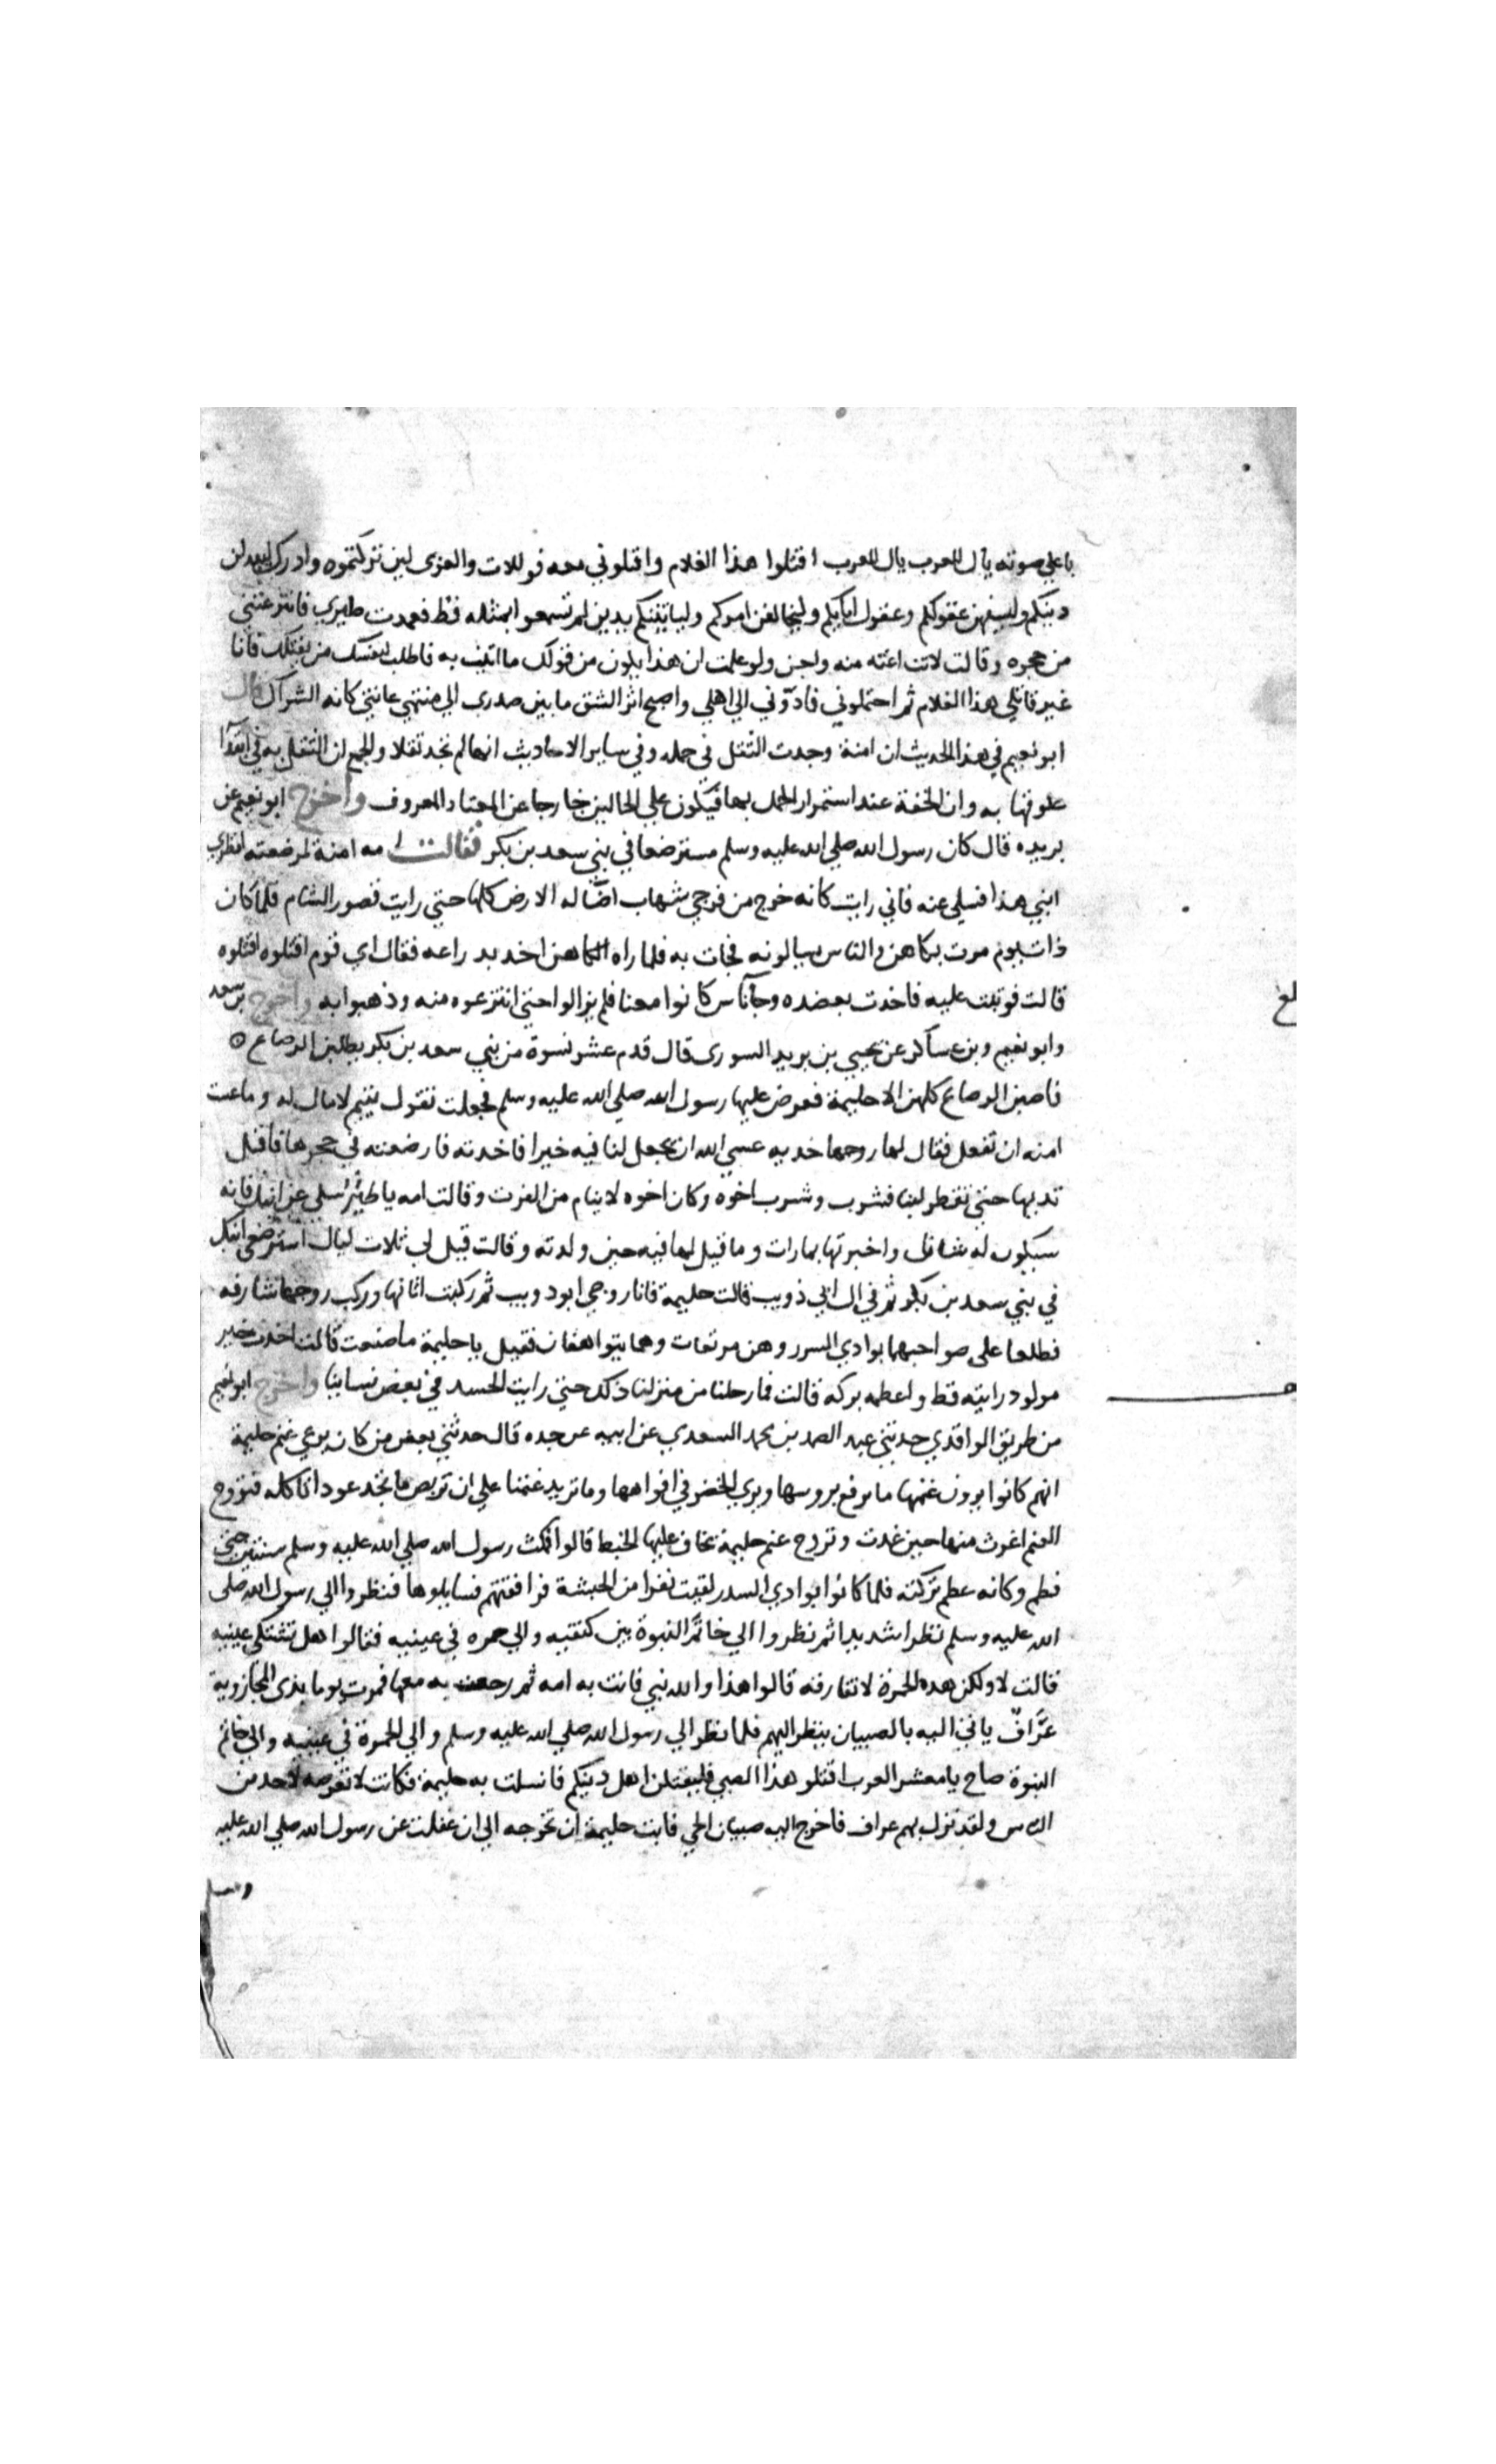 باعلي صوته يال للعرب يال للعرب اقتلوا هذا الغلام واقتلوني معه فو للات والعزى لين تركتموه وادرك ليبدلن
دينكم وليسفهن عقولكم وعقول ابايكم وليخالفن امركم ولياتينكم بدين لم تسمعوا بمثله قط فعمدت ظيري فانتزعتني
من حجره وقالت لانت اعته منه واجن ولو علمت ان هذا يكون من قولك ما اتيت به فاطلب لنفسك من يقتلك فانا
غير قاتلي هذا الغلام ثم احتملوني فادوني الي اهلي واصبح اثر الشق ما بين صدري الي منتهي عانتي كانه الشراك قال
ابو نعيم في هذا الحديث ان امنة وجدت الثقل في حمله وفي ساير الاحاديث انها لم تجد ثقلا والجمع ان الثقل به في ابتدا
علوقها به وان الخفة عند استمرار الحمل بها فيكون علي الحالين خارجا عن المعتاد المعروف واخرج ابو نعيم عن
بريده قال كان رسول الله صلي الله عليه وسلم مسترضعا في بني سعد بن بكر فقالت امه امنة لمرضعته انظري
ابني هذا فسلي عنه فاني رايت كانه خرج من فرجي شهاب اضا له الارض كلها حتي رايت قصور الشام فلما كان
ذات يوم مرت بكاهن والناس يسالونه فجات به فلما راه الكاهن اخد بد راعه فقال اي قوم اقتلوه اقتلوه
قالت فوثبت عليه فاخدت بعضده وجا ناس كانوا معنا فلم يزالوا حتي انتزعوه منه وذهبوا به واخرج بن سعد
وابو نعيم وبن عساكر عن يحيي بن يريد السوري قال قدم عشر نسوة من بني سعد بن بكر يطلبن الرضاع ه
فاصبن الرضاع كلهن الا حليمة فعرض عليها رسول الله صلي الله عليه وسلم فجعلت تقول يتيم لا مال له وما عست
امنه ان تفعل فقال لها روجها خد يه عسي الله ان يجعل لنا فيه خيرا فاخدته فارضعته في حجرها فاقبل
تديها حتي تقطر لبنا فشرب وشرب اخوه وكان اخوه لا ينام من الغرث وقالت امه يا ظير سلي عن ابنك فانه
سيكون له شان واخبرتها بما رات وما قيل لها فيه حين ولدته وقالت قيل لي ثلاث ليال استرضعي ابنك
في بني سعد بن بكر ثم في ال ابي ذويب قالت حليمة فانا روجي ابو دويب ثم ركبت اتانها وركب روجها شارفه
فطلعا علي صواحبهما بوادي السرر وهن مرتعات وهما يتواهقان فقيل يا حليمة ما صنعت قالت اخدت خير
مولود رايته قط واعظمه بركه قالت فما رحلنا من منزلنا ذلك حتي رايت الحسد في بعض نسايا واخرج ابو نعيم
من طريق الواقدي حدثني عبد الصمد بن محمد السعدي عن ابيه عن جده قال حدثني بعض من كان يرعي غنم حليمة
انهم كانوا يرون غنمها ما ترفع بروسها ويري الخضر في افواهها وما تريد غنمنا علي ان تربض ما تجد عودا تاكله فتروح
الغنم اغرث منها حين غدت وتروح غنم حليمة تخاف عليها الخبط قالوا فمكث رسول الله صلي الله عليه وسلم سنتين حتي
فطم وكانه عطم تركته فلما كانوا بوادي السدر لقيت نفرا من الحبشة فرافقتهم فسايلوها فنظروا الي رسول الله صلي
الله عليه وسلم نظرا شديدا ثم نظروا الي خاتم النبوة بين كتفيه والي حمره في عينيه فقالوا هل تشتكي عينيه
قالت لا ولكن هده الحمرة لا تفارقه قالوا هذا والله نبي فاتت به امه ثم رجعت به معها فمرت يوما بذي المجاز وبه
عراف ياتي اليه بالصبيان ينظر اليهم فلما نظر الي رسول الله صلي الله عليه وسلم والي الحمرة في عينيه والي خاتم
النبوة صاح يا معشر العرب اقتلو هذا الصبي فليقتلن اهل دينكم فانسلت به حليمة فكانت لا تعرضه لاحد من
الناس ولقد نزل بهم عراف فاخرج اليه صبيان الحي فابت حليمة ان تخرجه الي ان غفلت عن رسول الله صلي الله عليه
وسلم